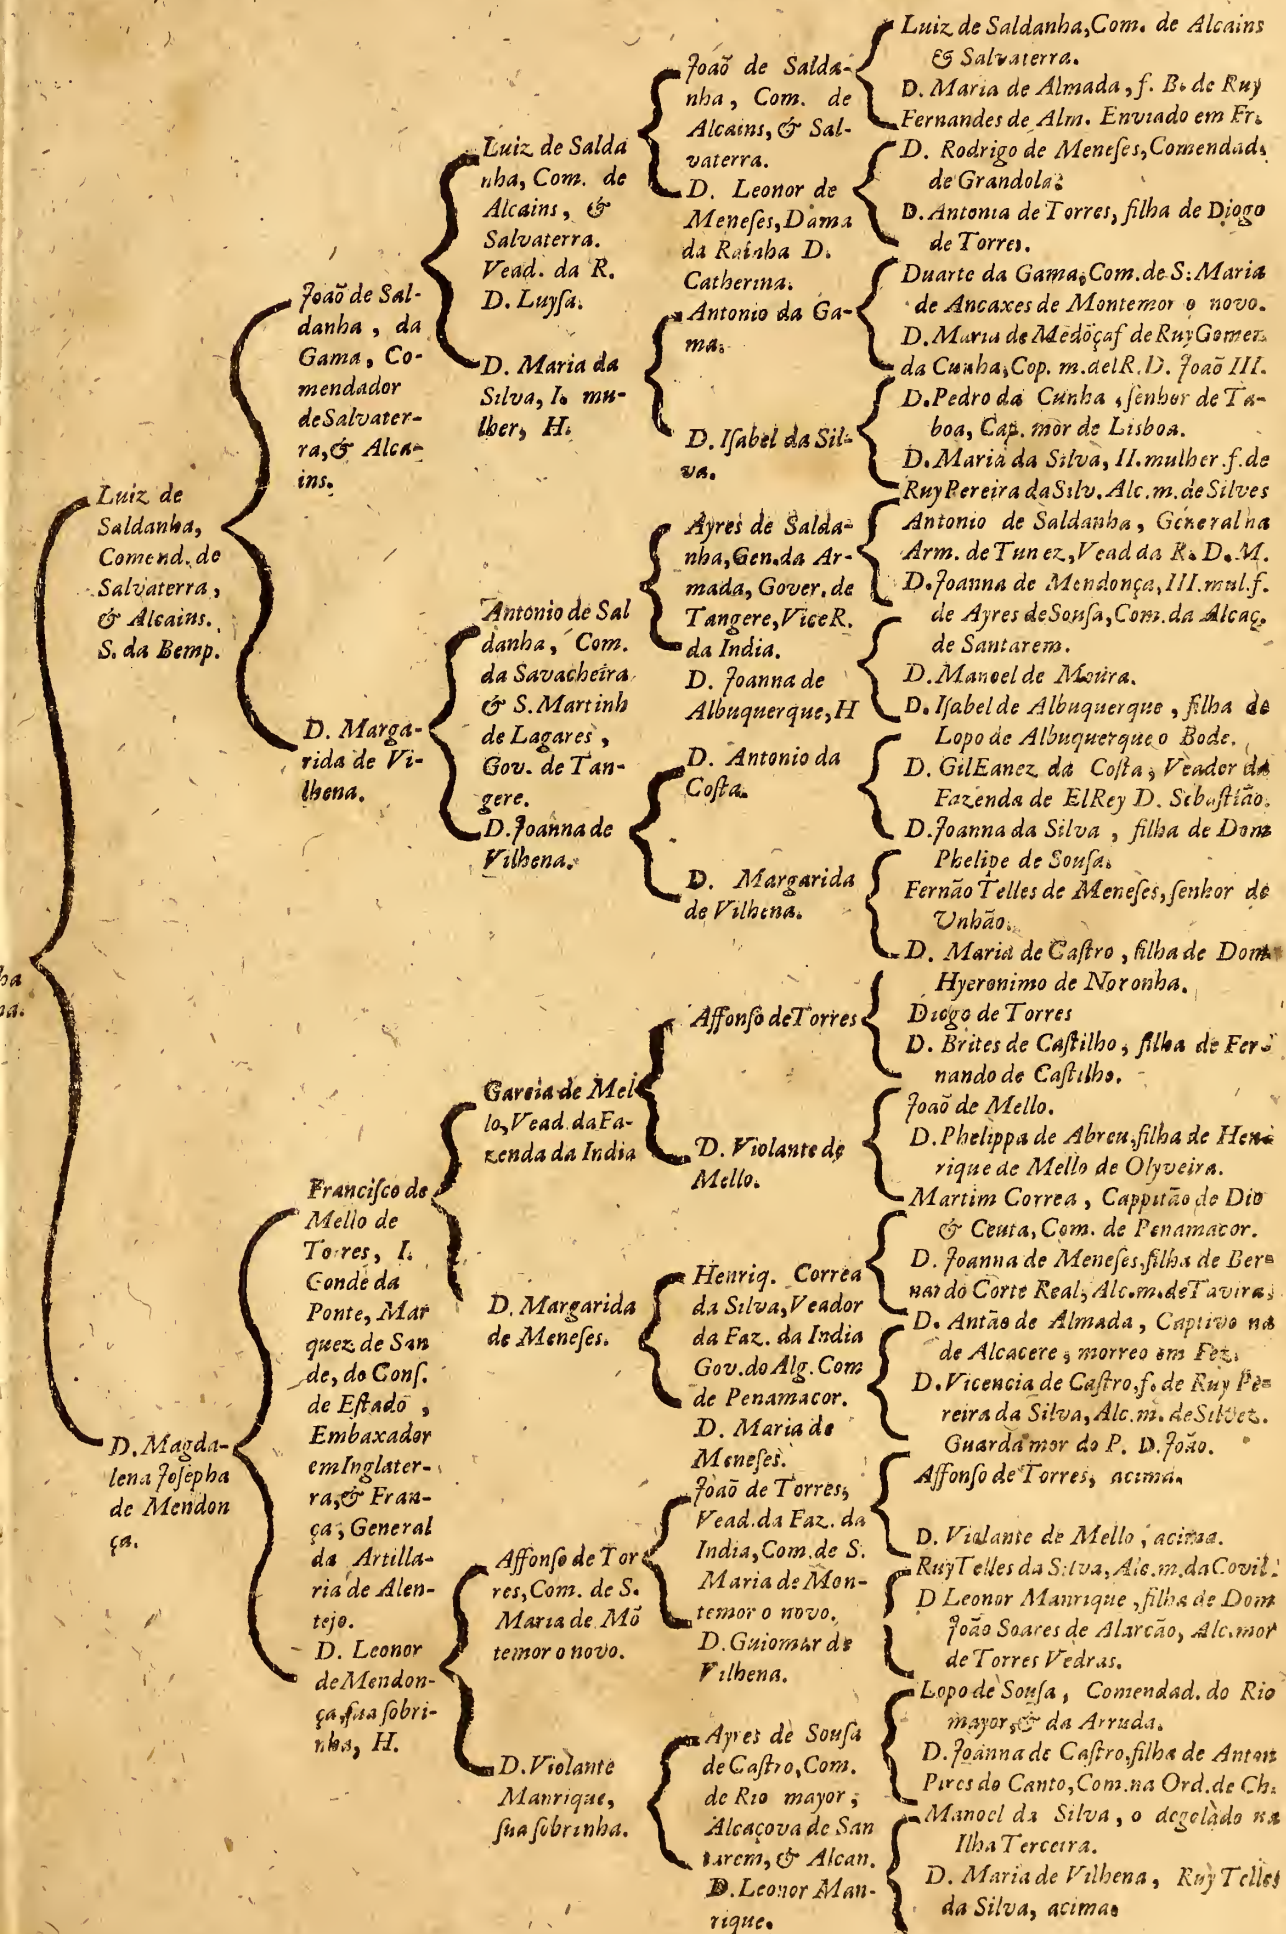 Luiz de
Saldanha,
Comend. de
Salvaterra,
& Alcains.
S. da Bemp.
D. Magda-
lena Joſepha
de Mendon
ça.
Joaõ de Sal-
danha, da
Gama, Co-
mendador
de Salvater-
ra, & Alca-
ins.
D. Marga-
rida de Vi-
lhena.
Franciſco de
Mello de
Torres, I.
Conde da
Ponte, Mar
quez de San
de, do Conſ.
de Eſtado,
Embaxador
em Inglater-
ra, & Fran-
ça, General
da Artilla-
ria de Alen-
tejo.
D. Leonor
de Mendon-
ça, ſua ſobri-
nha, H.
Luiz de Salda
nha, Com. de
Alcains, &
Salvaterra.
Vead. da R.
D. Luyſa.
D. Maria da
Silva, I. mu-
lher, H.
Antonio de Sal
danha, Com.
da Savacheira
& S. Martinh
de Lagares,
Gov. de Tan-
gere.
D. Joanna de
Vilhena.
Garcia de Mel
lo, Vead. da Fa-
zenda da India
D. Margarida
de Meneſes.
Affonſo de Tor
res, Com. de S.
Maria de Mõ
temor o novo.
D. Violante
Manrique,
ſua ſobrinha.
Joaõ de Salda-
nha, Com. de
Alcains, & Sal-
vaterra.
D. Leonor de
Meneſes, Dama
da Rainha D.
Catherina.
Antonio da Ga-
ma.
D. Iſabel da Sil-
va.
Ayres de Salda-
nha, Gen. da Ar-
mada, Gover. de
Tangere, Vice R.
da India.
D. Joanna de
Albuquerque, H
D. Antonio da
Coſta.
D. Margarida
de Vilhena.
Affonſo de Torres
D. Violante de
Mello.
Henriq. Correa
da Silva, Veador
da Faz. da India
Gov. do Alg. Com
de Penamacor.
D. Maria de
Meneſes.
Joaõ de Torres,
Vead. da Faz. da
India, Com. de S.
Maria de Mon-
temor o novo.
D. Guiomar de
Vilhena.
Ayres de Souſa
de Caſtro, Com.
de Rio mayor,
Alcaçova de San
tarem, & Alcan.
D. Leonor Man-
rique.
Luiz de Saldanha, Com. de Alcains
& Salvaterra.
D. Maria de Almada, f. B. de Ruy
Fernandes de Alm. Enviado em Fr.
D. Rodrigo de Meneſes, Comendad.
de Grandola.
D. Antonia de Torres, filha de Diogo
de Torres.
Duarte da Gama, Com. de S. Maria
de Ancaxes de Montemor o novo.
D. Maria de Medõça f de Ruy Gomez
da Cunha, Cop. m. del R. D. Joaõ III.
D. Pedro da Cunha, ſenhor de Ta-
boa, Cap. mòr de Lisboa.
D. Maria da Silva, II. mulher. f. de
Ruy Pereira da Silv. Alc. m. de Silves
Antonio de Saldanha, General na
Arm. de Tunez, Vead da R. D. M.
D. Joanna de Mendonça, III. mul. f.
de Ayres de Souſa, Com. da Alcaç.
de Santarem.
D. Manoel de Moura.
D. Iſabel de Albuquerque, filha de
Lopo de Albuquerque o Bode.
D. Gil Eanez da Coſta, Veador da
Fazenda de ElRey D. Sebaſtiāo.
D. Joanna da Silva, filha de Dom
Phelipe de Souſa.
Fernāo Telles de Meneſes, ſenhor de
Unhāo.
D. Maria de Caſtro, filha de Dom
Hyeronimo de Noronha.
Diogo de Torres
D. Brites de Caſtilho, filha de Fer-
nando de Caſtilho.
Joaõ de Mello.
D. Phelippa de Abreu, filha de Hen-
rique de Mello de Olyveira.
Martim Correa, Cappitāo de Dio
& Ceuta, Com. de Penamacor.
D. Joanna de Meneſes, filha de Ber-
nardo Corte Real, Alc. m. de Tavira.
D. Antāo de Almada, Captivo na
de Alcacere, morreo em Fez.
D. Vicencia de Caſtro, f. de Ruy Pe-
reira da Silva, Alc. m. de Silvez.
Guarda mor do P. D. Joāo.
Affonſo de Torres, acima.
D. Violante de Mello, acima.
Ruy Telles da Silva, Alc. m. da Covil.
D Leonor Manrique, filha de Dom
Joāo Soares de Alarcāo, Alc. mor
de Torres Vedras.
Lopo de Souſa, Comendad. do Rio
mayor, & da Arruda.
D. Joanna de Caſtro, filha de Anton
Pires do Canto, Com. na Ord. de Ch.
Manoel da Silva, o degolàdo na
Ilha Terceira.
D. Maria de Vilhena, Ruy Telles
da Silva, acima.